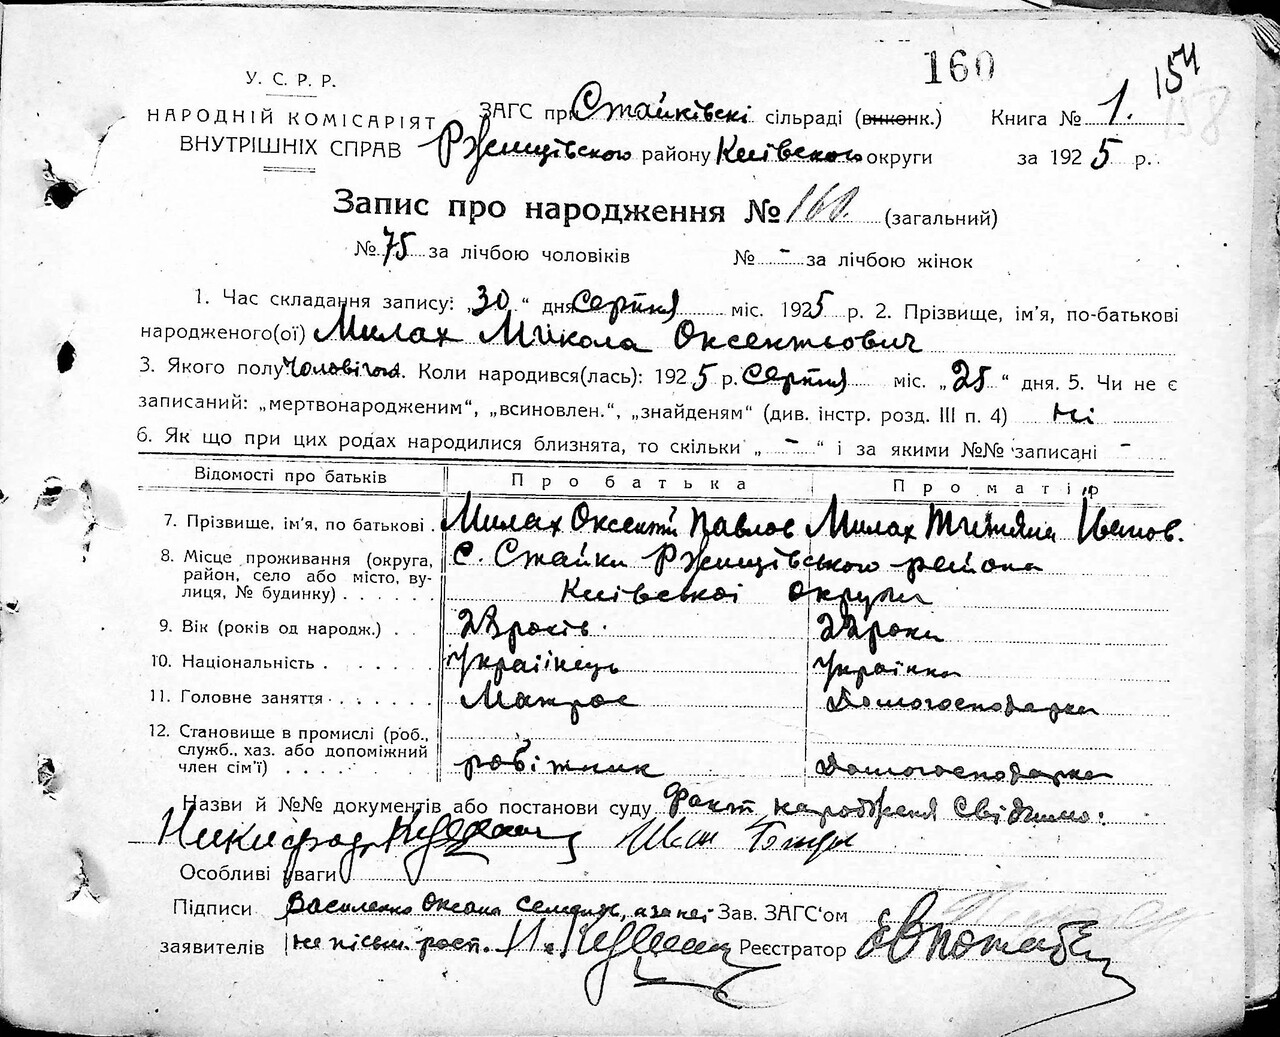 160
154
158
У. С. Р. Р.
НАРОДНІЙ КОМІСАРІЯТ
ВНУТРІШНІХ СПРАВ
ЗАГС при Стайківскі сільраді (виконк.)
Ржищівского району Київского округи
Книга № 1.
за 1925 р.
Запис про народження № 160. (загальний)
№ 75 за лічбою чоловіків № - за лічбою жінок
1. Час складання запису: „30“ дня серпня міс. 1925 р. 2. Прізвище, ім'я, по-батькові
народженого(ої) Милах Микола Оксентьович
3. Якого полу Чоловічого. Коли народився(лась): 1925 р. Серпня міс. „25“ дня. 5. Чи не є
записаний: „мертвонародженим“, „всиновлен.“, „знайденям“ (див. інстр. розд. III п. 4) Ні
6. Як що при цих родах народилися близнята, то скільки „ - “ і за якими №№ записані -
Відомості про батьків Про батька Про матір
7. Прізвище, ім'я, по батькові . Милах Оксентій Павлов Милах Титяна Іванов.
8. Місце проживання (округа, район, село або місто, вулиця, № будинку) . . . . . с. Стайки Ржищівського района
Київської округи
9. Вік (років од народж.) . . 28 років. 22 роки
10. Національність . . . . . Українець Українка
11. Головне заняття . . . . . Матрос Домогосподарка
12. Становище в промислі (роб., служб., хаз. або допоміжний член сім'ї) . . . . робітник Домогосподарка
Назви й №№ документів або постанови суду Факт народженя свідчимо:
Никифор Іван
Особливі уваги
Підписи Василенко Оксана а за неї Зав. ЗАГС'ом
заявителів не письм. росп. Реєстратор